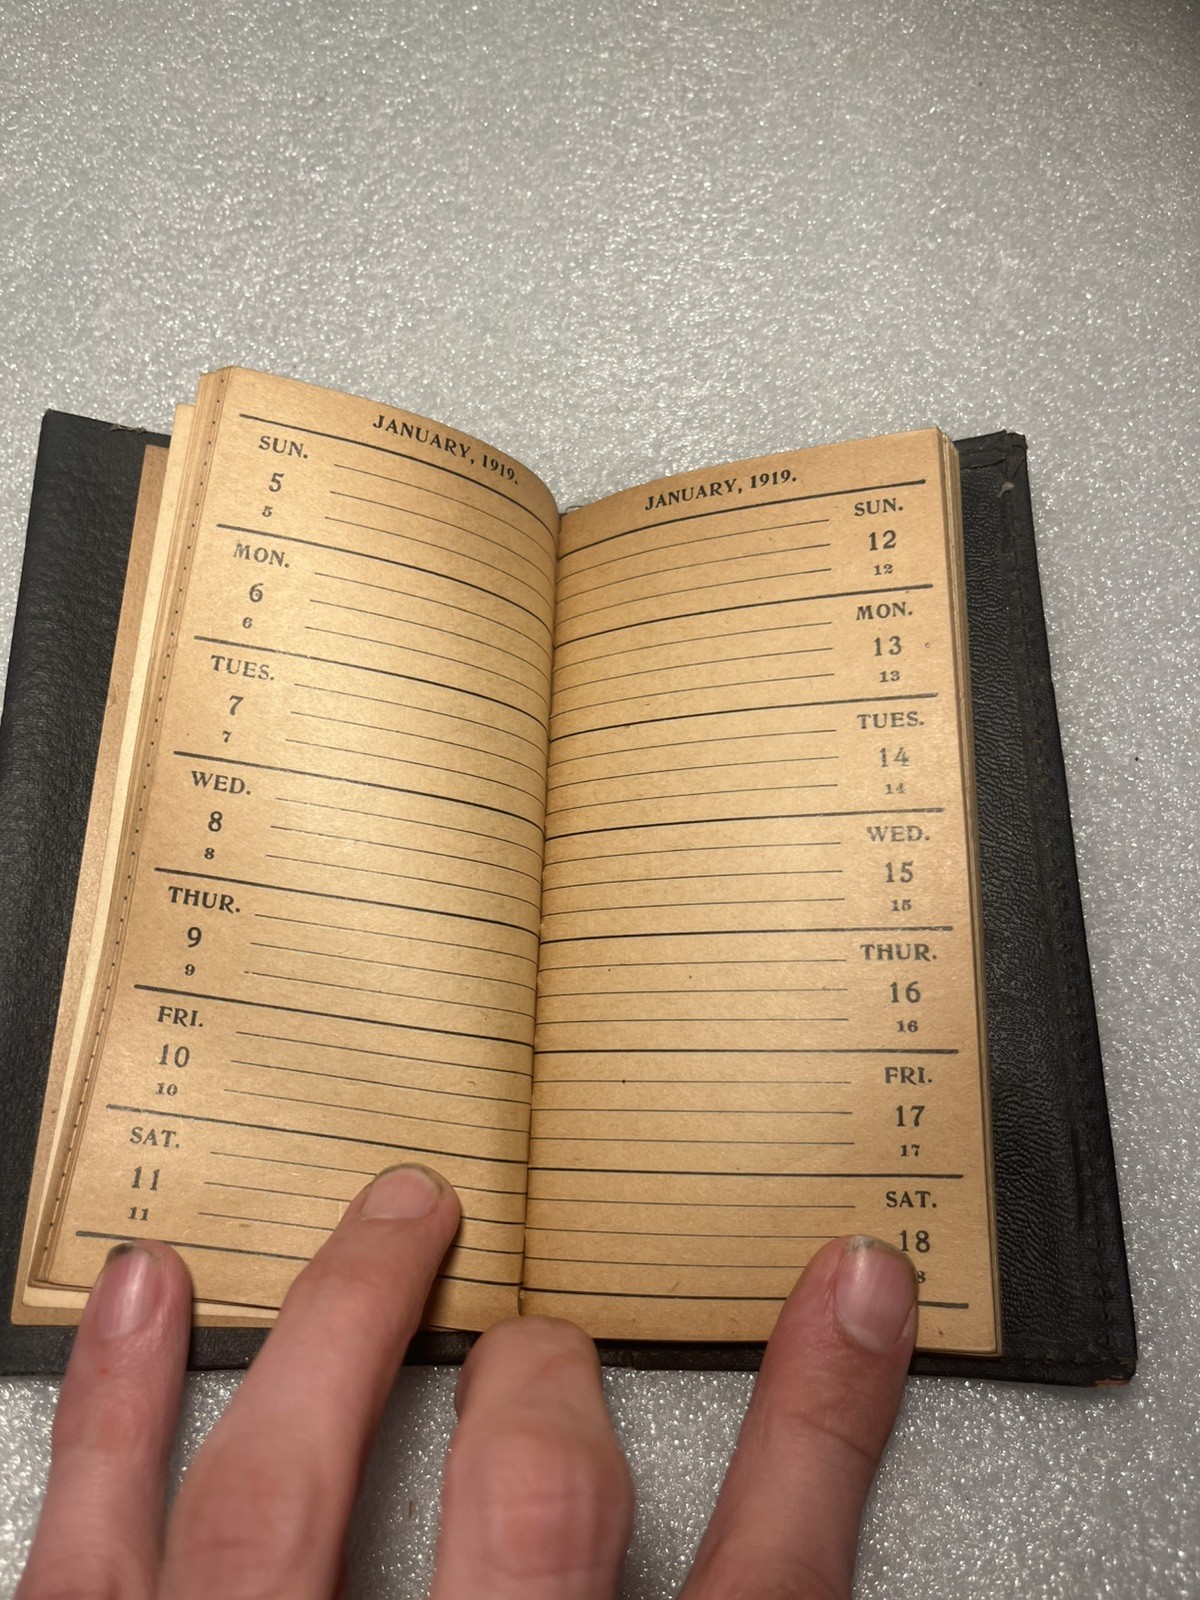 JANUARY, 1919.
SUN.
5
5
MON.
6
6
TUES.
7
7
WED.
8
8
THUR.
9
9
FRI.
10
10
SAT.
11
11
JANUARY, 1919.
SUN.
12
12
MON.
13
13
TUES.
14
14
WED.
15
15
THUR.
16
16
FRI.
17
17
SAT.
18
8